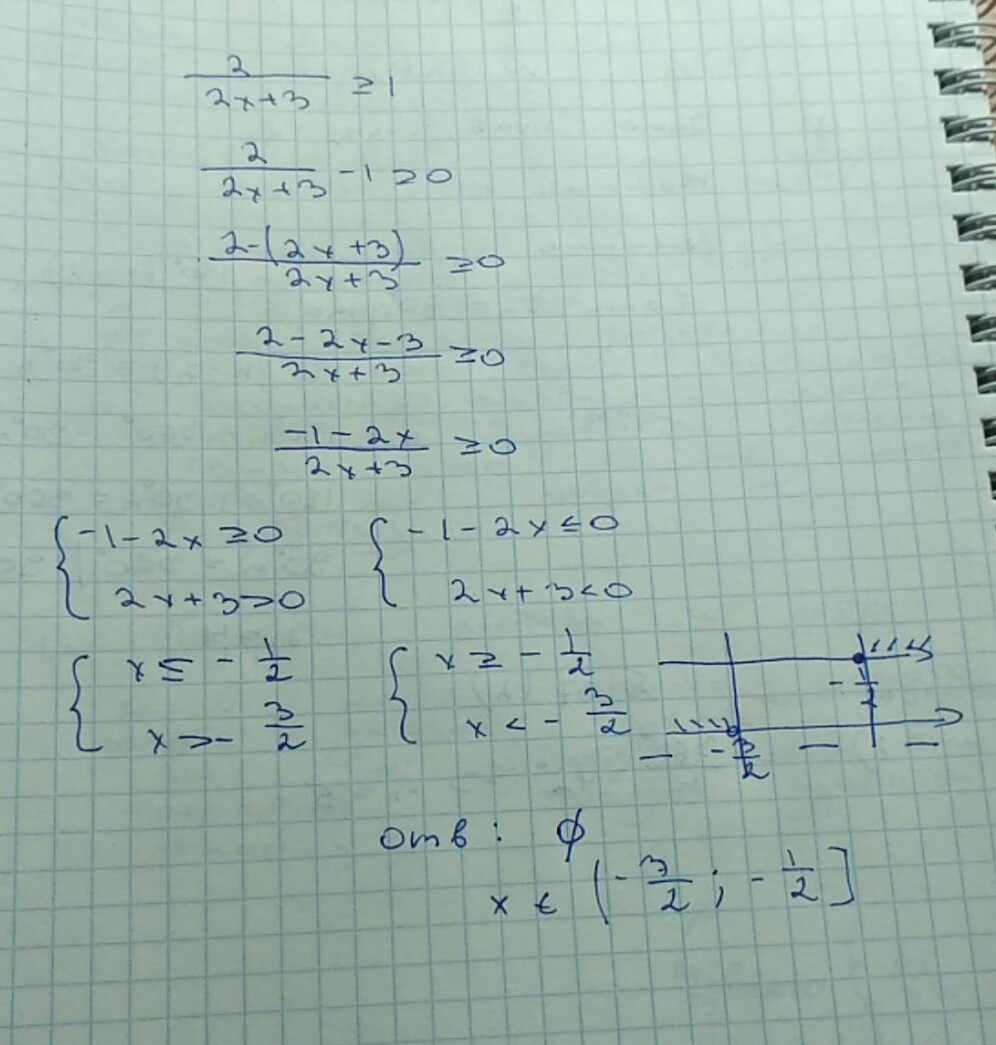 2/(2x+3) ≥ 1
2/(2x+3) - 1 ≥ 0
(2-(2x+3))/(2x+3) ≥ 0
(2-2x-3)/(2x+3) ≥ 0
(-1-2x)/(2x+3) ≥ 0
{ -1-2x ≥ 0 { -1-2x ≤ 0
2x+3 > 0 2x+3 < 0
{ x ≤ -1/2 { x ≥ -1/2
x > -3/2 x < -3/2
-1/2
— -3/2 — —
Отв : ∅
x ∈ (-3/2 ; -1/2]